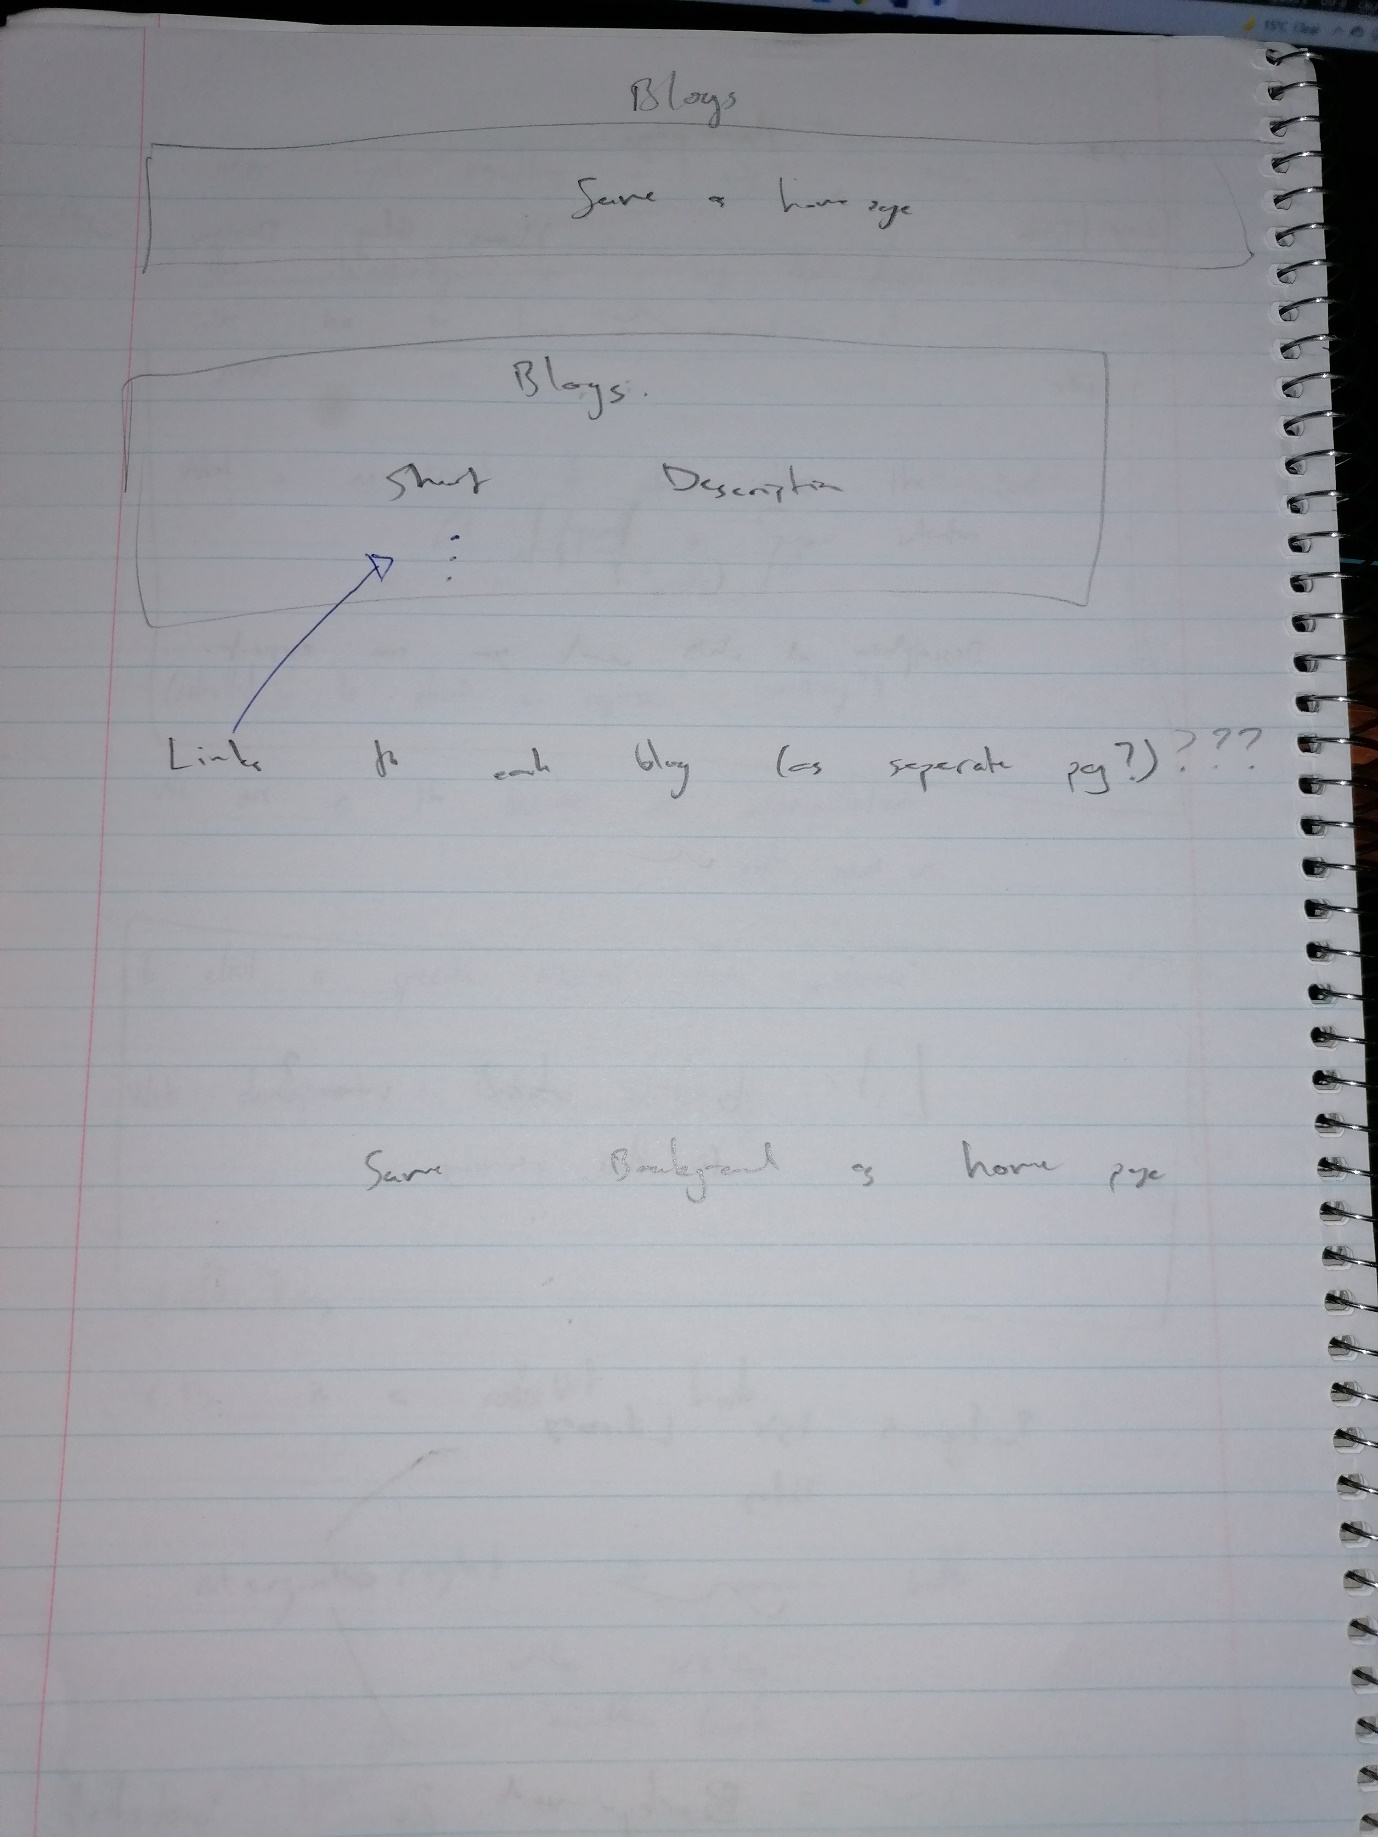 Blogs
Same as home page
Blogs.
Short Description
Links to each blog (as seperate pg?)???
Same Background as home page
15°C Clear